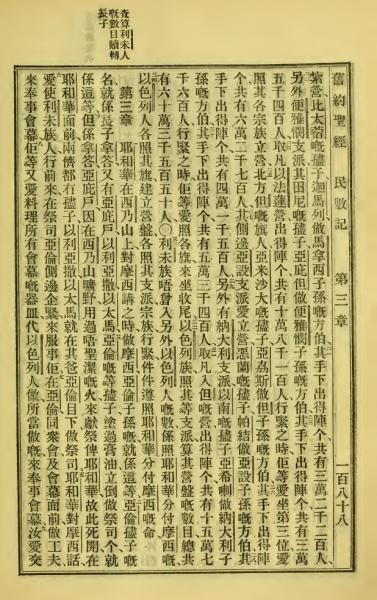 舊約聖經 民數記 第三章 一百八十八
紮營比太晉嘅儘子迦馬列做馬拿西子孫嘅方伯其手下出得陣個共有三萬二千二百人
另外便雅憫支派其因尼嘅儘子亞庇但做便雅憫子孫嘅方伯其手下出得陣個共有三萬
五千四百人取凡以法蓮營出得陣個共有十萬八千一百人行緊之時佢等愛坐第三位愛
照其各宗族立營北方但嘅旗人亞米沙大嘅儘子亞荔斯做但子孫嘅方伯其手下出得陣
個共有六萬二千七百人其側邊亞設支派愛立營愚蘭嘅儘子帕結做亞設子孫嘅方伯其
手下出得陣個共有四萬一千五百人另外有納大利支派以南嘅儘子亞希喇做納大利子
孫嘅方伯其手下出得陣個共有五萬三千四百人取凡入但嘅營出得陣個共有十五萬七
千六百人行緊之時佢等愛照各旗來坐收尾以色列族照其等支派算其營盤嘅數目總共
有六十萬三千五百五十人〇利未族唔曾入另外以色列人嘅數係照耶和華分付摩西嘅
以色列人各照其旗建立營盤各照其支派宗族行緊件件遵照耶和華分付摩西嘅命
第三章 耶和華在西乃山上對摩西講之時做摩西亞倫子孫嘅就係這等亞倫儘子嘅
名就係長子拿答又有亞庇戶以利亞撒以太馬亞倫嘅等儘子塗過膏油立倒做祭司個就
係這等但係拿答亞庇戶因在西乃山曠野用過唔聖潔嘅火來獻祭俾耶和華故此死開在
耶和華面前兩儕都冇儘子以利亞撒以太馬就在其爸亞倫目下做祭司耶和華對摩西話
愛使利未族人行前來在祭司亞倫側邊企緊來服事佢在亞倫同衆會及會幕面前做工夫
來奉事會幕佢等又愛料理所有會幕嘅器皿代以色列人做所當做嘅來奉事會幕汝愛交
查算利未人
嘅數目贖轉
長子